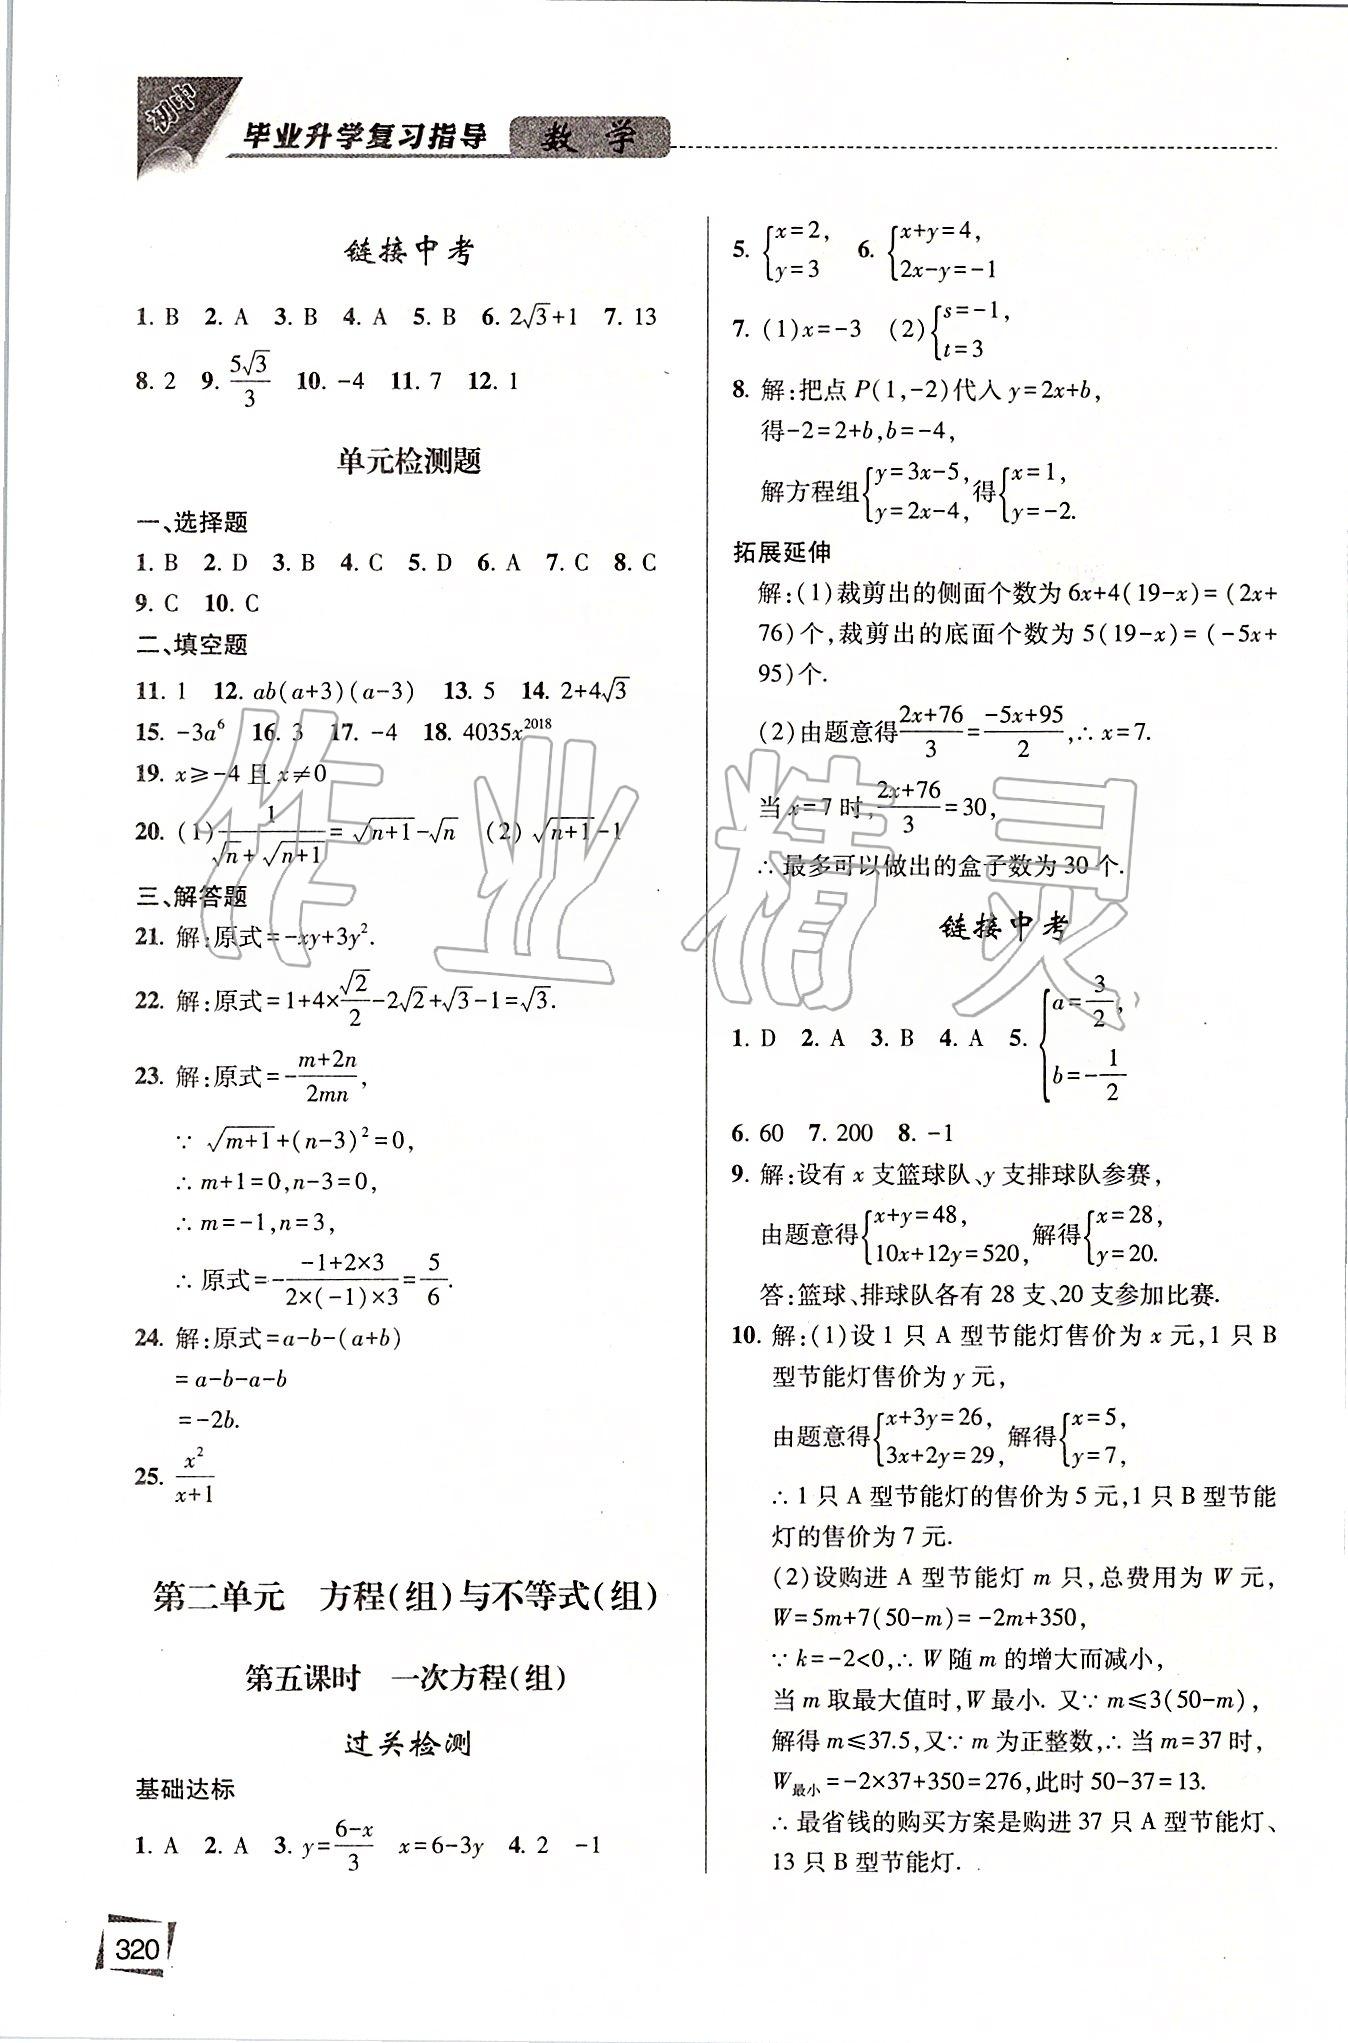 初中
毕业升学复习指导 数学
链接中考
1. B 2. A 3. B 4. A 5. B 6. 2√3+1 7. 13
8. 2 9. 5√3/3 10. -4 11. 7 12. 1
单元检测题
一、选择题
1. B 2. D 3. B 4. C 5. D 6. A 7. C 8. C
9. C 10. C
二、填空题
11. 1 12. ab(a+3)(a-3) 13. 5 14. 2+4√3
15. -3a⁶ 16. 3 17. -4 18. 4035x²⁰¹⁸
19. x≥-4且x≠0
20. (1) 1/(√n+√(n+1))=√(n+1)-√n (2) √(n+1)-1
三、解答题
21. 解:原式=-xy+3y².
22. 解:原式=1+4×√2/2-2√2+√3-1=√3.
23. 解:原式=-(m+2n)/2mn,
∵ √(m+1)+(n-3)²=0,
∴ m+1=0,n-3=0,
∴ m=-1,n=3,
∴ 原式=-(-1+2×3)/(2×(-1)×3)=5/6.
24. 解:原式=a-b-(a+b)
=a-b-a-b
=-2b.
25. x²/(x+1)
第二单元 方程(组)与不等式(组)
第五课时 一次方程(组)
过关检测
基础达标
1. A 2. A 3. y=(6-x)/3 x=6-3y 4. 2 -1
5. {x=2, y=3 6. {x+y=4, 2x-y=-1
7. (1)x=-3 (2){s=-1, t=3
8. 解:把点 P(1,-2)代入 y=2x+b,
得-2=2+b,b=-4,
解方程组{y=3x-5, y=2x-4, 得{x=1, y=-2.
拓展延伸
解:(1)裁剪出的侧面个数为 6x+4(19-x)=(2x+
76)个,裁剪出的底面个数为 5(19-x)=(-5x+
95)个.
(2)由题意得(2x+76)/3=(-5x+95)/2,∴ x=7.
当 x=7 时,(2x+76)/3=30,
∴ 最多可以做出的盒子数为 30 个.
链接中考
1. D 2. A 3. B 4. A 5. {a=3/2, b=-1/2
6. 60 7. 200 8. -1
9. 解:设有 x 支篮球队、y 支排球队参赛,
由题意得{x+y=48, 10x+12y=520, 解得{x=28, y=20.
答:篮球、排球队各有 28 支、20 支参加比赛.
10. 解:(1)设 1 只 A 型节能灯售价为 x 元,1 只 B
型节能灯售价为 y 元,
由题意得{x+3y=26, 3x+2y=29, 解得{x=5, y=7,
∴ 1 只 A 型节能灯的售价为 5 元,1 只 B 型节能
灯的售价为 7 元.
(2)设购进 A 型节能灯 m 只,总费用为 W 元,
W=5m+7(50-m)=-2m+350,
∵ k=-2<0,∴ W 随 m 的增大而减小,
当 m 取最大值时,W 最小. 又∵ m≤3(50-m),
解得 m≤37.5,又∵ m 为正整数,∴ 当 m=37 时,
W最小=-2×37+350=276,此时 50-37=13.
∴ 最省钱的购买方案是购进 37 只 A 型节能灯、
13 只 B 型节能灯.
320
作业精灵